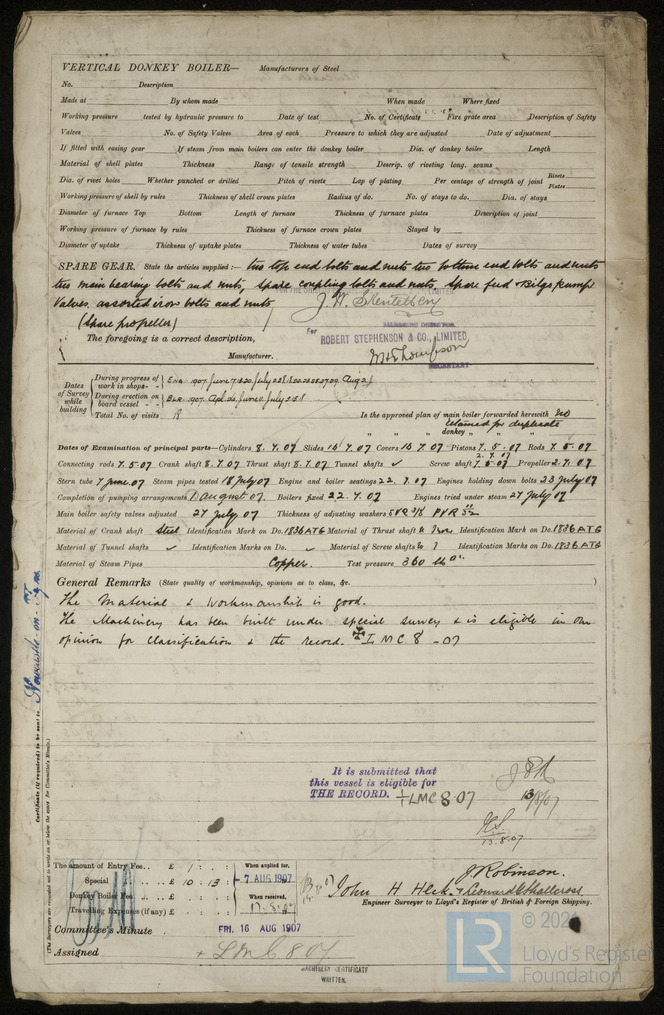 VERTICAL DONKEY BOILER— Manufacturers of Steel
No. Description
Made at By whom made When made Where fixed
Working pressure tested by hydraulic pressure to Date of test No. of Certificate Fire grate area Description of Safety
Valves No. of Safety Valves Area of each Pressure to which they are adjusted Date of adjustment
If fitted with easing gear If steam from main boilers can enter the donkey boiler Dia. of donkey boiler Length
Material of shell plates Thickness Range of tensile strength Descrip. of riveting long. seams
Dia. of rivet holes Whether punched or drilled Pitch of rivets Lap of plating Per centage of strength of joint Rivets Plates
Working pressure of shell by rules Thickness of shell crown plates Radius of do. No. of stays to do. Dia. of stays
Diameter of furnace Top Bottom Length of furnace Thickness of furnace plates Description of joint
Working pressure of furnace by rules Thickness of furnace crown plates Stayed by
Diameter of uptake Thickness of uptake plates Thickness of water tubes Dates of survey
SPARE GEAR. State the articles supplied:— two top end bolts and nuts two bottom end bolts and nuts
two main bearing bolts and nuts, spare coupling bolts and nuts, spare feed & Bilge pump
Valves assorted iron bolts and nuts
(Spare propeller)
The foregoing is a correct description,
For ROBERT STEPHENSON & CO., LIMITED
Manufacturer.
SECRETARY
Dates of Survey while building
During progress of work in shops - -
During erection on board vessel - - -
Total No. of visits 18
In the approved plan of main boiler forwarded herewith
retained for duplicate
" " " donkey " "
Dates of Examination of principal parts—Cylinders 8.7.07 Slides Covers Pistons Rods
Connecting rods Crank shaft 8.7.07 Thrust shaft 8.7.07 Tunnel shafts ✓ Screw shaft Propeller 2.7.07
Stern tube 7 June 07 Steam pipes tested 18 July 07 Engine and boiler seatings 22.7.07 Engines holding down bolts 23 July 07
Completion of pumping arrangements 1 August 07 Boilers fixed 22.7.07 Engines tried under steam 27 July 07
Main boiler safety valves adjusted 27 July 07 Thickness of adjusting washers
Material of Crank shaft Steel Identification Mark on Do. 1836ATG Material of Thrust shaft Identification Mark on Do. 1836ATG
Material of Tunnel shafts ✓ Identification Marks on Do. ✓ Material of Screw shafts Identification Marks on Do. 1836ATG
Material of Steam Pipes Copper. Test pressure 360 lb
General Remarks (State quality of workmanship, opinions as to class, &c. )
The Material & Workmanship is good.
The Machinery has been built under special survey & is eligible in our
opinion for classification & the record. ✠LMC 8-07
Newcastle-on-Tyne
Certificate (if required) to be sent to
(The Surveyors are requested not to write on or below the space for Committee's Minute.)
It is submitted that
this vessel is eligible for
THE RECORD. +LMC 8.07
13/8/07
13.8.07
The amount of Entry Fee. . £ 1 : :
Special . . . . £ 10 : 13 :
Donkey Boiler Fee . . . £ : :
Travelling Expenses (if any) £ : :
When applied for,
7 AUG 1907
When received,
J. Robinson.
John H Heck & Leonard C Shallcross
Engineer Surveyor to Lloyd's Register of British & Foreign Shipping.
Committee's Minute FRI. 16 AUG 1907
Assigned + LMC 8 07
MACHINERY CERTIFICATE
WRITTEN.
LR
Lloyd's Register
Foundation